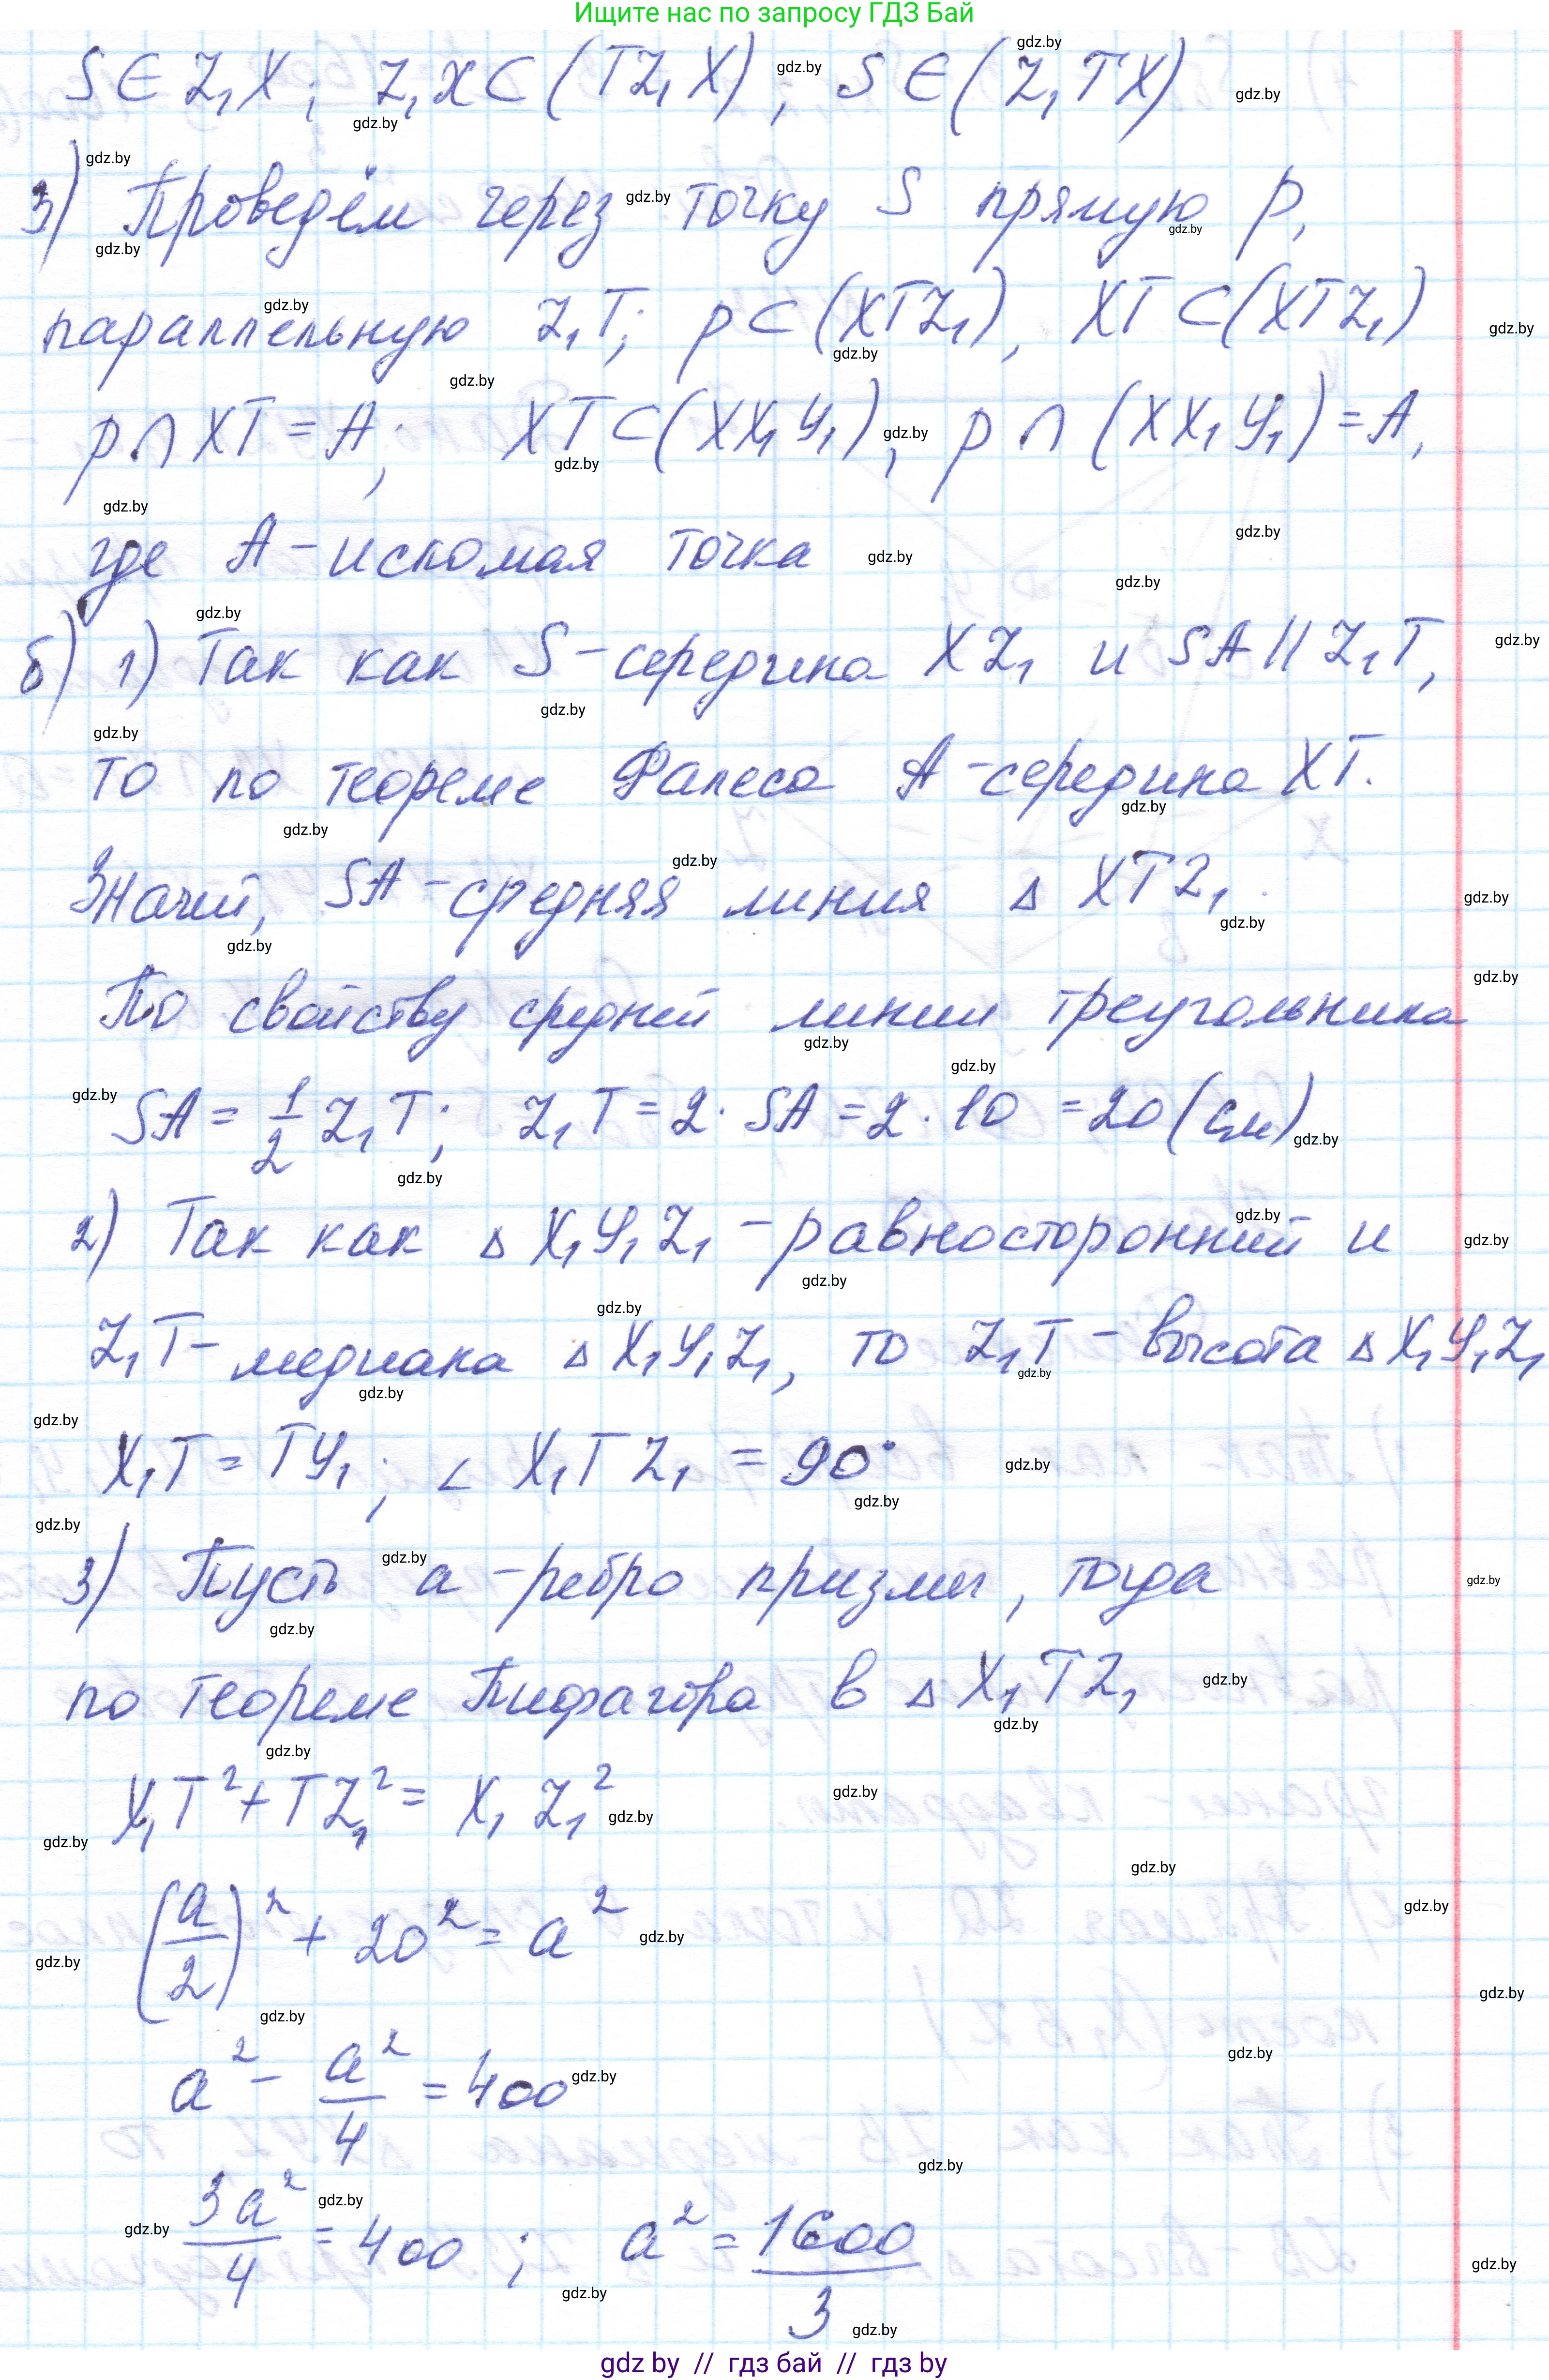 Ищите нас по запросу ГДЗ Бай
S ∈ Z₁X; Z₁X ⊂ (TZ₁X); S ∈ (Z₁TX)
3) Проведём через точку S прямую p,
параллельную Z₁T; p ⊂ (XTZ₁), XT ⊂ (XTZ₁)
p ∩ XT = A; XT ⊂ (XX₁Y₁); p ∩ (XX₁Y₁) = A,
где A - искомая точка
б) 1) Так как S - середина XZ₁ и SA || Z₁T,
то по теореме Фалеса A - середина XT.
Значит, SA - средняя линия Δ XTZ₁.
По свойству средней линии треугольника
SA = 1/2 Z₁T; Z₁T = 2 · SA = 2 · 10 = 20 (см)
2) Так как Δ X₁Y₁Z₁ - равносторонний и
Z₁T - медиана Δ X₁Y₁Z₁, то Z₁T - высота Δ X₁Y₁Z₁
X₁T = TY₁; ∠ X₁TZ₁ = 90°
3) Пусть a - ребро призмы, тогда
по теореме Пифагора в Δ X₁TZ₁
X₁T² + TZ₁² = X₁Z₁²
(a/2)² + 20² = a²
a² - a²/4 = 400
3a²/4 = 400; a² = 1600/3
gdz by // гдз бай // гдз by